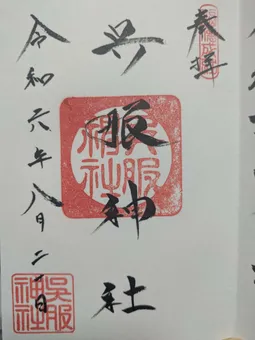 奉拝
呉服神社
呉服
神社
令和六年八月二日
吳服
神社